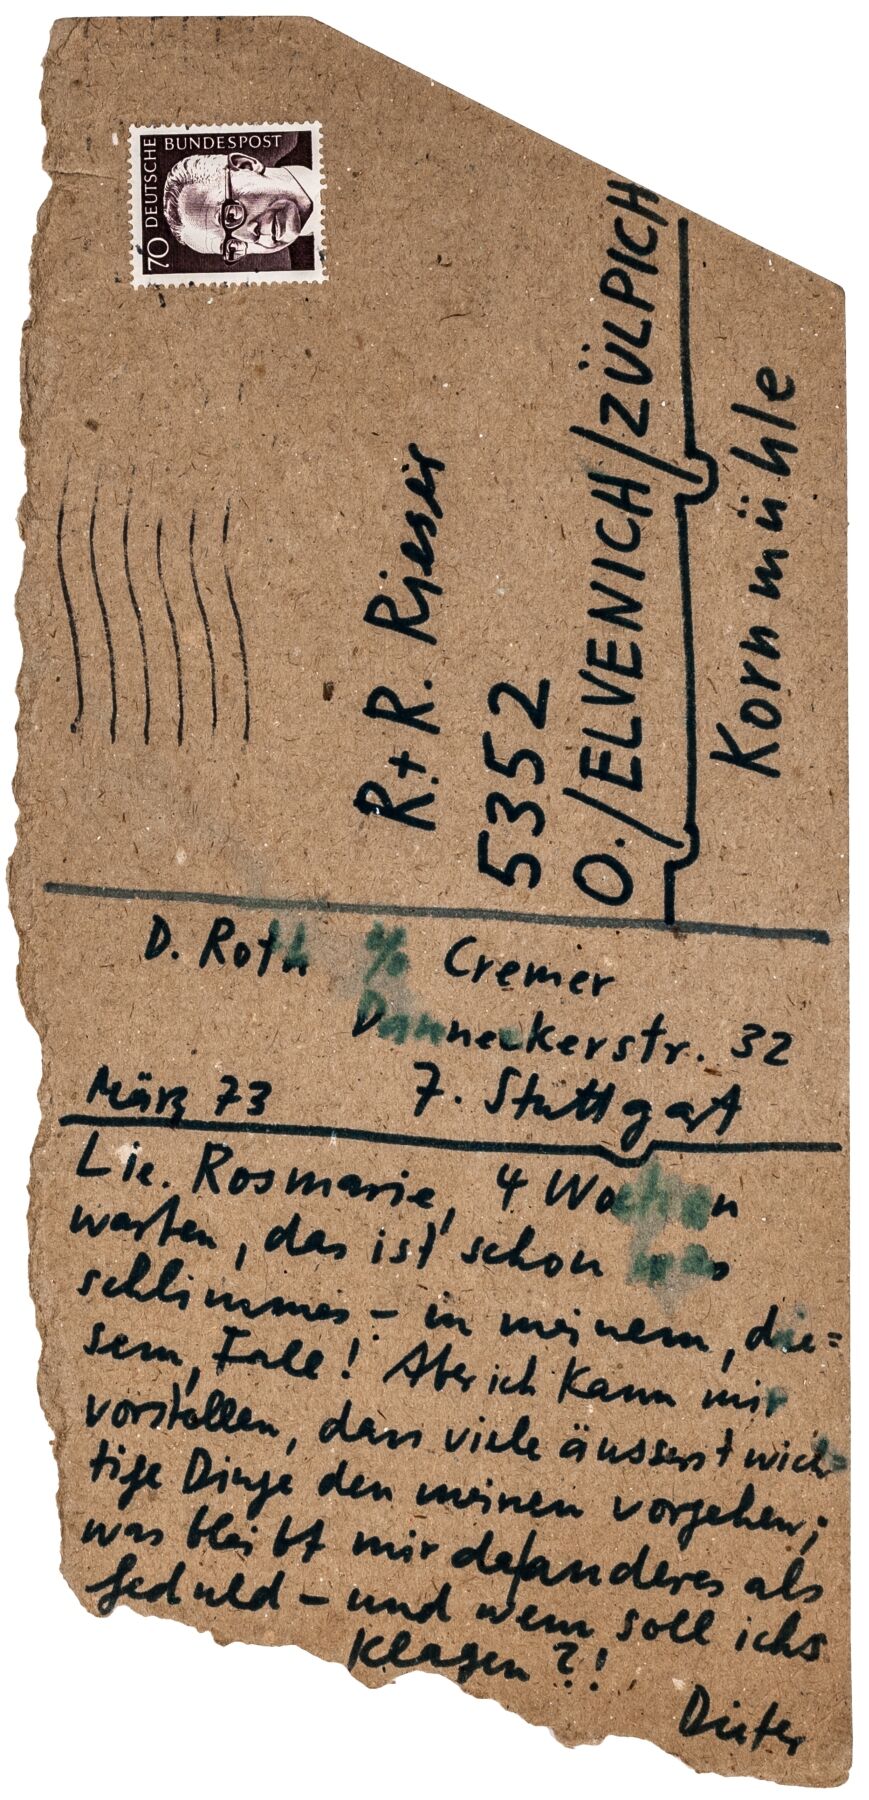 DEUTSCHE BUNDESPOST
70
R.+R. Rieser
5352
O./ELVENICH/ZÜLPICH
Kornmühle
D. Roth c/o Cremer
Danneckerstr. 32
März 73 7. Stuttgart
Lie. Rosmarie, 4 Wochen
warten, das ist schon was
schlimmes – in meinem, die=
sem, Falle! Aber ich kann mir
vorstellen, dass viele äusserst wich=
tige Dinge den meinen vorgehen;
was bleibt mir da anderes als
Geduld – und wem soll ichs
klagen?!
Dieter